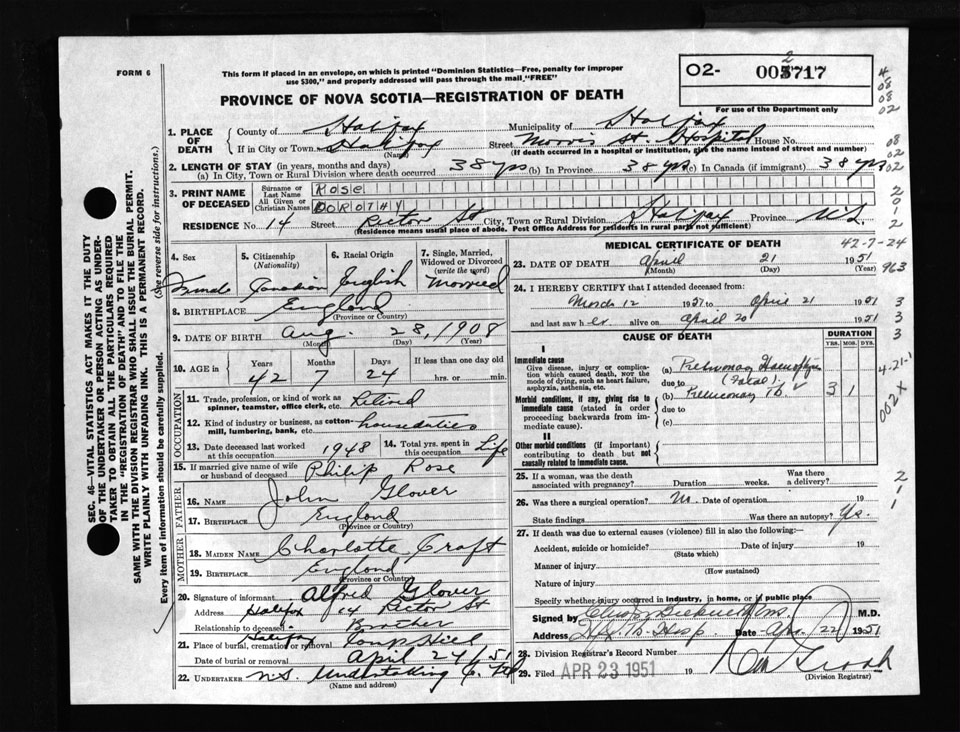 FORM 6
This form if placed in an envelope, on which is printed "Dominion Statistics—Free, penalty for improper
use $300," and properly addressed will pass through the mail "FREE"
O2- 005717
2
For use of the Department only
PROVINCE OF NOVA SCOTIA—REGISTRATION OF DEATH
1. PLACE OF DEATH
County of Halifax
Municipality of Halifax
If in City or Town Halifax
(Name)
Street Morris St. Hospital House No.
(If death occurred in a hospital or institution, give the name instead of street and number)
2. LENGTH OF STAY (in years, months and days)
(a) In City, Town or Rural Division where death occurred 38 yrs (b) In Province 38 yrs (c) In Canada (if immigrant) 38 yrs
3. PRINT NAME OF DECEASED
Surname or Last Name ROSE
All Given or Christian Names DOROTHY
RESIDENCE No. 14 Street Pictor St City, Town or Rural Division Halifax Province N.S.
(Residence means usual place of abode. Post Office Address for residents in rural parts not sufficient)
4. Sex
Female
5. Citizenship (Nationality)
Canadian
6. Racial Origin
English
7. Single, Married, Widowed or Divorced (write the word)
Married
8. BIRTHPLACE England
(Province or Country)
9. DATE OF BIRTH Aug 28, 1908
(Month) (Day) (Year)
10. AGE in Years Months Days If less than one day old
42 7 24 hrs. or min.
OCCUPATION
11. Trade, profession, or kind of work as spinner, teamster, office clerk, etc. Retired
12. Kind of industry or business, as cotton-mill, lumbering, bank, etc. house duties
13. Date deceased last worked at this occupation 1948
14. Total yrs. spent in this occupation Life
15. If married give name of wife or husband of deceased Philip Rose
FATHER
16. Name John Glover
17. Birthplace England
(Province or Country)
MOTHER
18. MAIDEN NAME Charlotte Craft
19. BIRTHPLACE England
(Province or Country)
20. Signature of informant Alfred Glover
Address Halifax 14 Pictor St
Relationship to deceased Brother
21. Place of burial, cremation or removal Halifax Camp Hill
Date of burial or removal April 24/51
22. UNDERTAKER N.S. Undertaking Co.
(Name and address)
MEDICAL CERTIFICATE OF DEATH
42-7-24
23. DATE OF DEATH April 21 1951
(Month) (Day) (Year)
963
24. I HEREBY CERTIFY that I attended deceased from:
March 12 1951 to April 21 1951
and last saw her alive on April 20 1951
CAUSE OF DEATH
DURATION
YRS. MOS. DYS.
I
Immediate cause
Give disease, injury or complication which caused death, not the mode of dying, such as heart failure, asphyxia, asthenia, etc.
(a) Pulmonary
due to (Fatal)
Morbid conditions, if any, giving rise to immediate cause (stated in order proceeding backwards from immediate cause).
(b) Pulmonary Tb. 3 1
due to
(c)
II
Other morbid conditions (if important) contributing to death but not causally related to immediate cause.
25. If a woman, was the death associated with pregnancy? Duration weeks. Was there a delivery?
26. Was there a surgical operation? Date of operation 19
State findings Was there an autopsy? Yes.
27. If death was due to external causes (violence) fill in also the following:-
Accident, suicide or homicide? Date of injury 19
(State which)
Manner of injury
(How sustained)
Nature of injury
Specify whether injury occurred in industry, in home, or in public place
Signed by M.D.
Address Hfx. Tb. Hosp. Date Apr. 22 1951
28. Division Registrar's Record Number
29. Filed APR 23 1951 19
(Division Registrar)
SEC. 46—VITAL STATISTICS ACT MAKES IT THE DUTY
OF THE UNDERTAKER OR PERSON ACTING AS UNDER-
TAKER TO OBTAIN ALL THE PARTICULARS REQUIRED
IN THE "REGISTRATION OF DEATH" AND TO FILE THE
SAME WITH THE DIVISION REGISTRAR WHO SHALL ISSUE THE BURIAL PERMIT.
WRITE PLAINLY WITH UNFADING INK. THIS IS A PERMANENT RECORD.
Every item of information should be carefully supplied. (See reverse side for instructions.)
4
08
08
02
08
02
02
2
0
1
2
2
3
3
3
4-21-1
002X
2
1
1